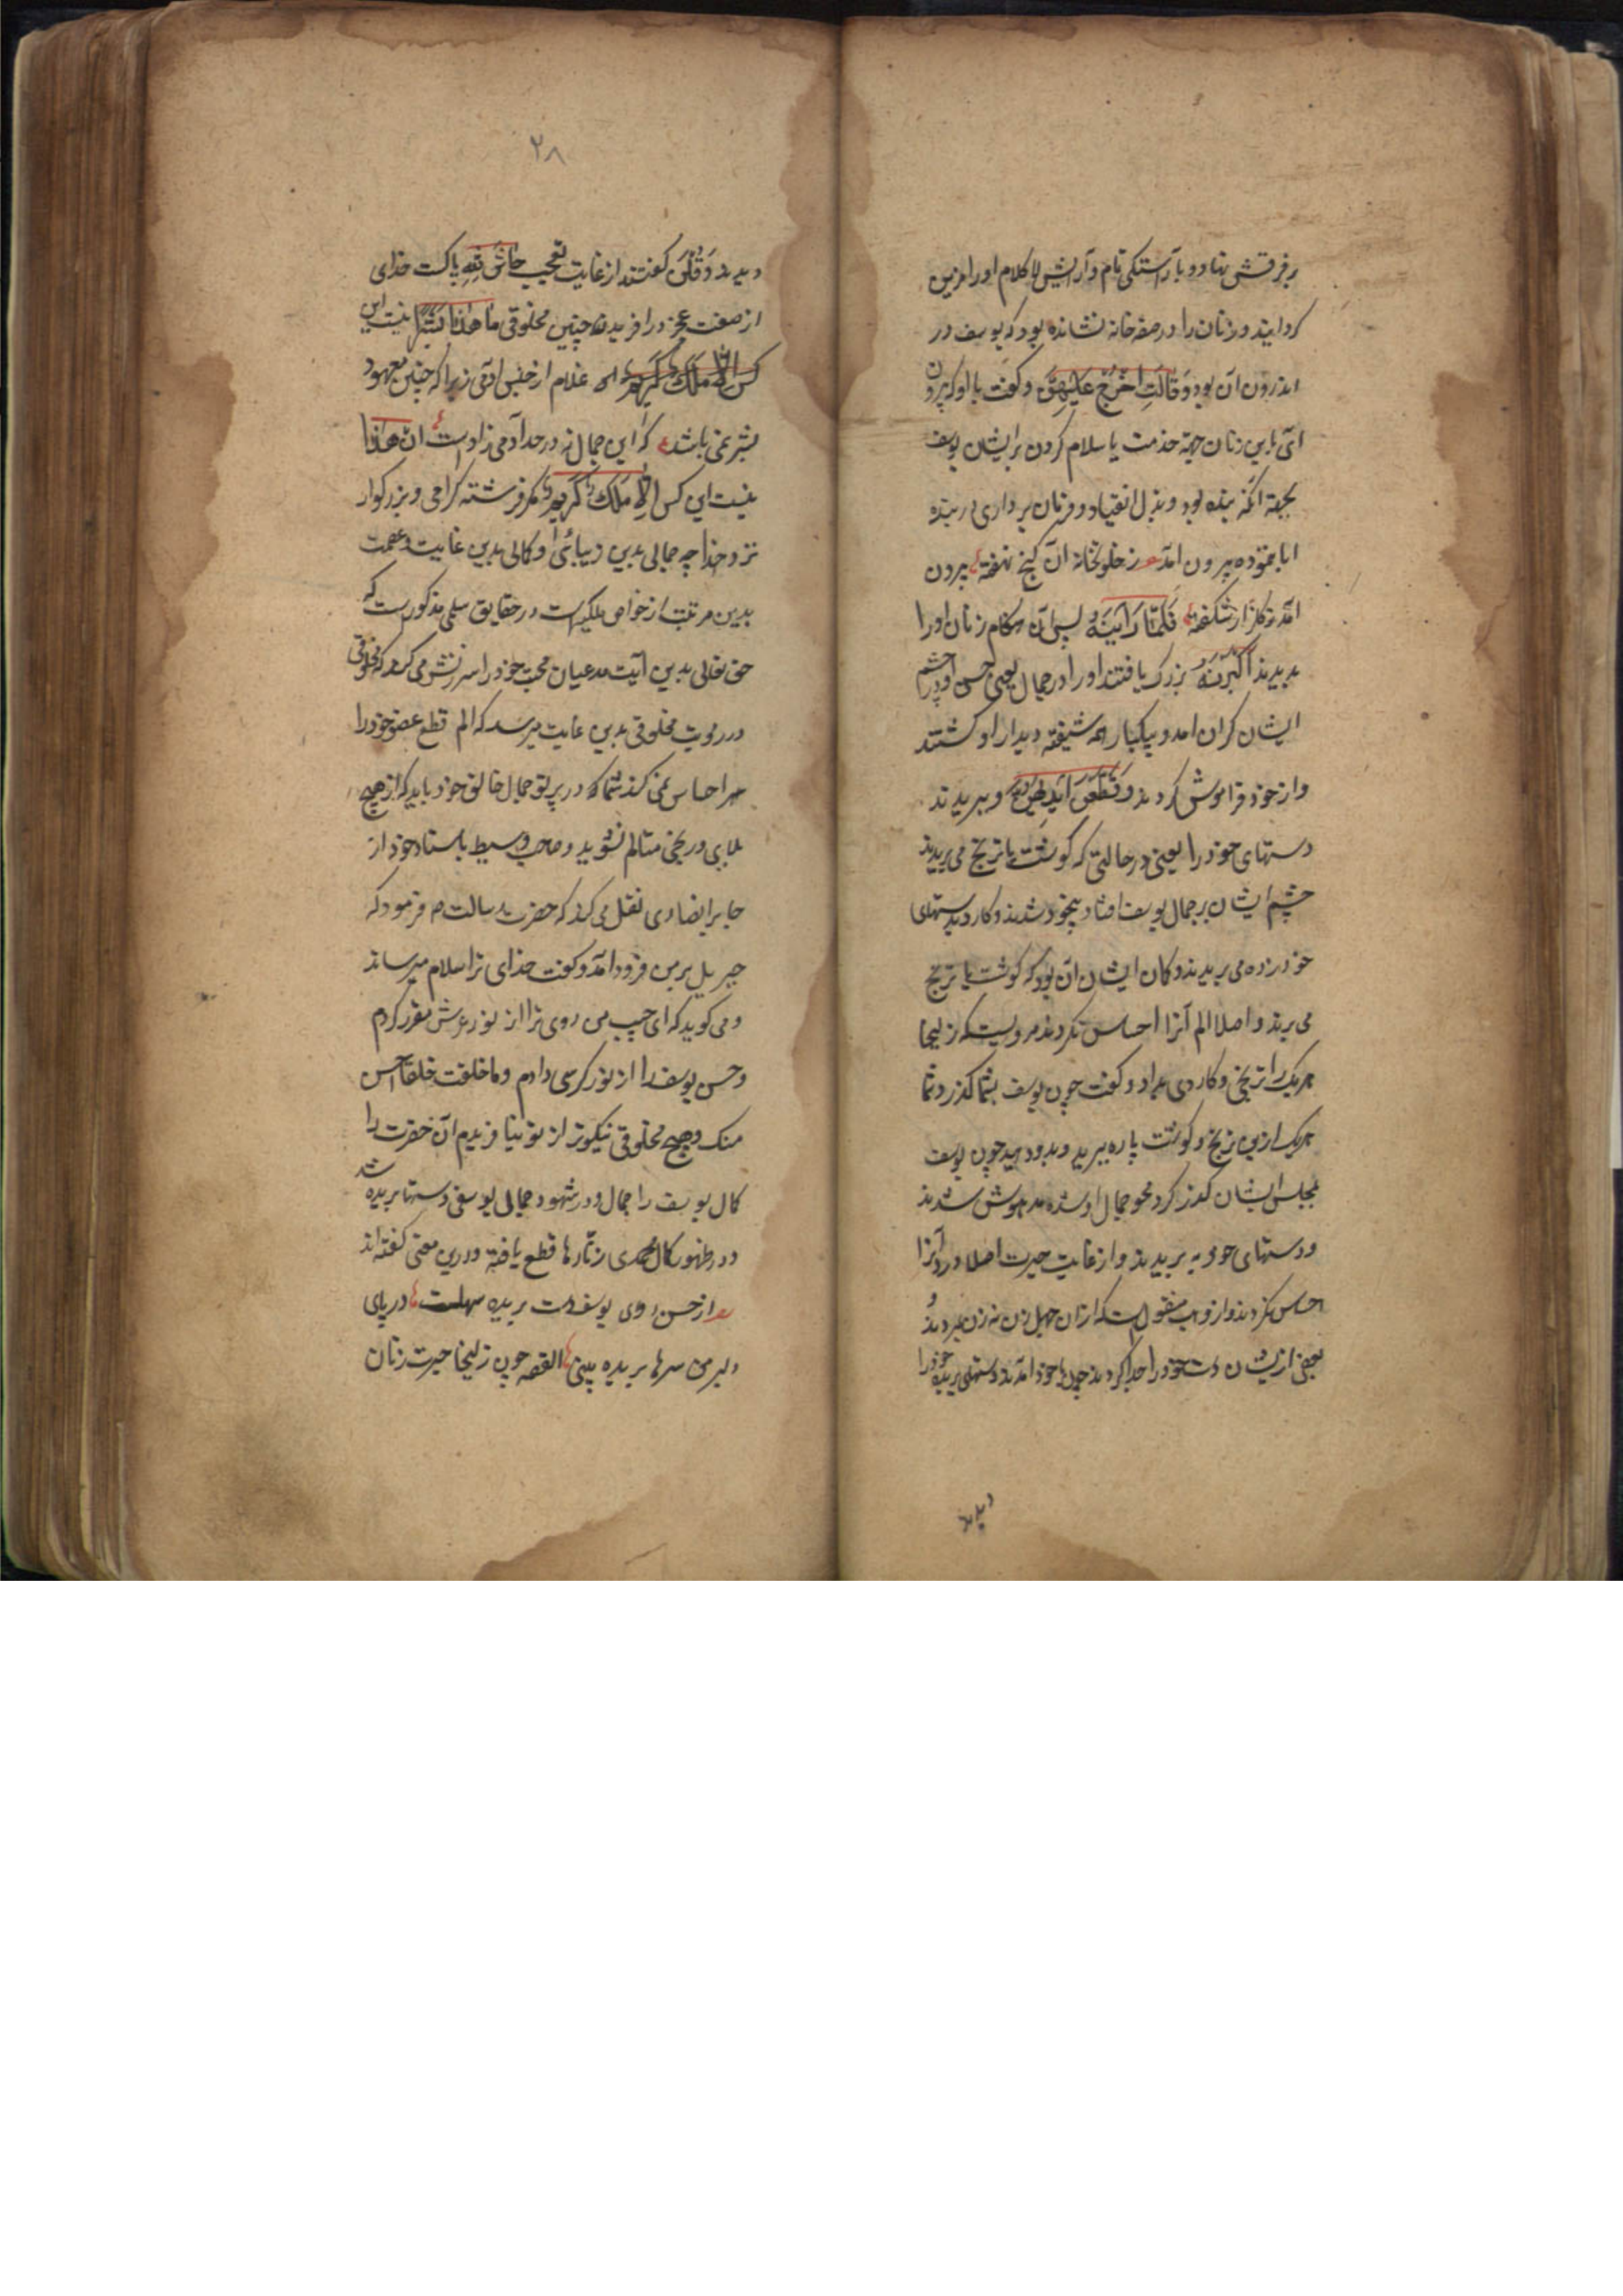 بر فرقش نهاد و بآراستگی تام و آرایش لا کلام او را مزین
کردانید و زنان را در صفه خانه نشانده بود که یوسف در
اندرون آن بود وَقَالَتِ اخْرُجْ عَلَيْهِنَّ و کفت با او که بیرون
آی باین زنان جهة خدمت یا سلام کردن بر ایشان یوسف
بجهة انکه بنده بود و بذل انقیاد و فرمان برداری در بنده
ابا ننموده بیرون آمد ز خلوتخانه آن کنج نهفته بیرون
امد چو کلزار شکفته فَلَمَّا رَأَيْنَهُ پس آن هنکام زنان او را
بدیدند أَكْبَرْنَهُ بزرک یافتند او را در جمال یعنی حسن او در چشم
ایشان کران امد و بیکبار همه شیفته دیدار او کشتند
و از خود فراموش کردند وَقَطَّعْنَ أَيْدِيَهُنَّ و ببریدند
دستهای خود را یعنی در حالتی که کوشت یا ترنج می بریدند
چشم ایشان بر جمال یوسف افتاد بیخود شدند و کارد بر دستهای
خود زده می بریدند و کمان ایشان آن بود که کوشت یا ترنج
می برند و اصلا الم آنرا احساس نکردند مرویست که زلیخا
هر یک را ترنجی و کاردی بداد و کفت چون یوسف بشما کذرد شما
هر یک ازین ترنج و کوشت پاره ببرید و بدو دهید چون یوسف
بمجلس ایشان کذر کرد محو جمال او شده مدهوش شدند
و دستهای خود به بریدند و از غایت حیرت اصلا درد آنرا
احساس نکردند و از وهب منقول است که از آن چهل زن نه زن بمردند و
بعضی ازیشان دست خود را جدا کردند چون با خود آمدند دستهای بریده خود را
دیدند
۲۸
دیدند وَقُلْنَ کفتند از غایت تعجب حَاشَ لِلَّهِ پاکست خدای
از صفت عجز در افریدن چنین مخلوقی مَا هَذَا بَشَرًا نیست این
کس إِلَّا مَلَكٌ كَرِيمٌ این غلام از جنس آدمی زیرا که چنین معهود
بشر نمی باشد که این جمال نه در حد آدمی زادست إِنْ هَذَا
نیست این کس إِلَّا مَلَكٌ كَرِيمٌ مکر فرشته کرامی و بزرکوار
نزد خدا چه جمالی بدین زیبائی و کمالی بدین غایت و عصمت
بدین مرتبت از خواص ملکیه است در حقایق سلمی مذکورست که
حق تعالی بدین آیت مدعیان محبت خود را سرزنش می کند که مخلوقی
در رویت مخلوقی بدین غایت میرسد که الم قطع عضو خود را
احساس نمی کند شما که در پرتو جمال خالق خود باید که از هیچ
بلایی و رنجی متالم نشوید و صاحب وسیط باسناد خود از
جابر انصاری نقل می کند که حضرت رسالت ص فرمود که
جبریل بر من فرود آمد و کفت خدای ترا سلام میرساند
و می کوید که ای حبیب من روی ترا از نور عرش مقرر کردم
و حسن یوسف را از نور کرسی دادم و ما خلقت خلقا احسن
منک و هیچ مخلوقی نیکوتر از تو نیافریدم آن حضرت را
کمال یوسف را جمال و در شهود جمالی یوسفی دستها بریده شد
و در ظهور کمال محمدی زنارها قطع یافته و درین معنی کفته اند
از حسن روی یوسف دست بریده سهلست در پای
دلبر من سرها بریده بینی القصه چون زلیخا حیرت زنان